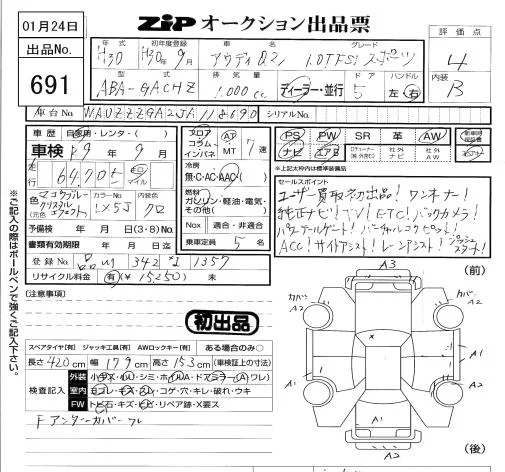 01月24日
ZiP オークション出品票
出品No.
691
年式 初年度登録 車名 グレード
H30 H30年9月 アウディQ2 1.0TFSI スポーツ
型式 排気量 ドア ハンドル
ABA-GACHZ 1.000cc ディーラー・並行 5 左・右
評価点
4
内装
B
車台No. WAUZZZGA2JA118690 シリアルNo.
車歴 自家用・レンタ・( )
車検 R9年9月
走行 64,705 キロ マイル
色 (元色) マゴウブルークリスタルエフェクト カラーNo. LX5J 内装色 クロ
予備検 年 月 日(3・8)No.
書類有効期限 年 月 日迄
登録No. 342 1357
リサイクル料金 有(¥15,250) 未
フロア コラム インパネ AT MT 7速
冷房
無・C・AC・AAC
燃料
ガソリン・軽油・電気・その他( )
Nox 適合・非適合
乗車定員 5名
PS PW SR 革 AW
ナビ エアB
※上記太枠内は標準装備品
新車時保証書
セールスポイント
ユーザー買取初出品!ワンオーナー!
純正ナビ!TV!ETC!バックカメラ!
パワーテールゲート!バーチャルコクピット!
ACC!サイドアシスト!レーンアシスト!プッシュスタート!
※ご記入の際はボールペンで強くご記入下さい。
[注意事項]
初出品
スペアタイヤ[有] ジャッキ工具[有] AWロックキー[有] ある場合のみ○
長さ420cm 幅179cm 高さ153cm (車検証上の寸法)
検査記入
外装 小キズ・小U・シミ・ホイルA・ドアミラー(A)ワレ)
室内 ヨゴレ・キズ・スレ・コゲ・穴・キレ・破れ・ウキ
FW トビ石・キズ・ヒビ・リペア跡・X要ス
Fアンダーカバーワレ
A3
(前)
カバー A2
カバー A2
A1
A1
A2
A1
A2
(後)